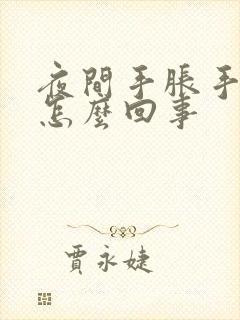 夜間手脹手
怎麼回事
賈永婕